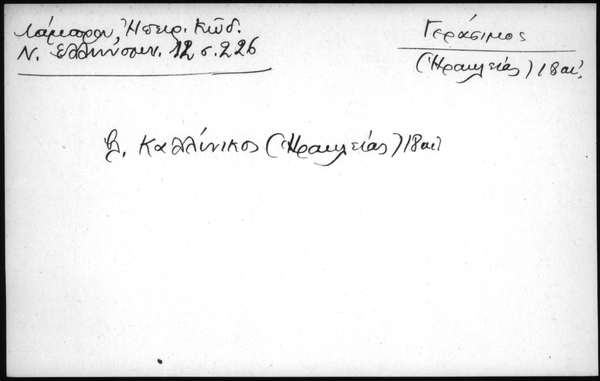 Λάμπρου, Ἠπειρ. Κώδ.
Ν. Ἑλληνομν. 12 σ. 226
Γεράσιμος
(Ἡρακλείας) 18 αἰ.
βλ. Καλλίνικος (Ἡρακλείας) 18 αἰ